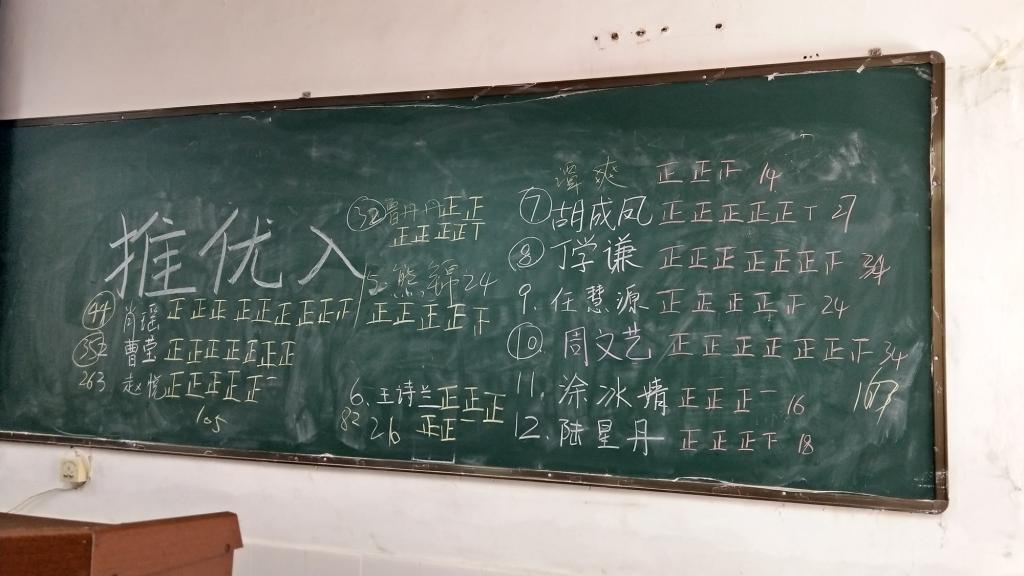 推优入
㊹ 肖瑶 正正正正正正正正
㉟ 曹莹 正正正正正正正
263 赵悦 正正正正正一
105
㉜ 曹丹丹 正正
正正正正丅
5 熊锦 24
正正正正下
6. 王诗兰 正正正
82 26 正正一
谭爽 正正正 14
⑦ 胡成凤 正正正正正丅 27
⑧ 丁学谦 正正正正正正正 34
9. 任慧源 正正正正正 24
⑩ 周文艺 正正正正正正正 34
163
11. 涂冰婧 正正正一 16
12. 陆星丹 正正正下 18